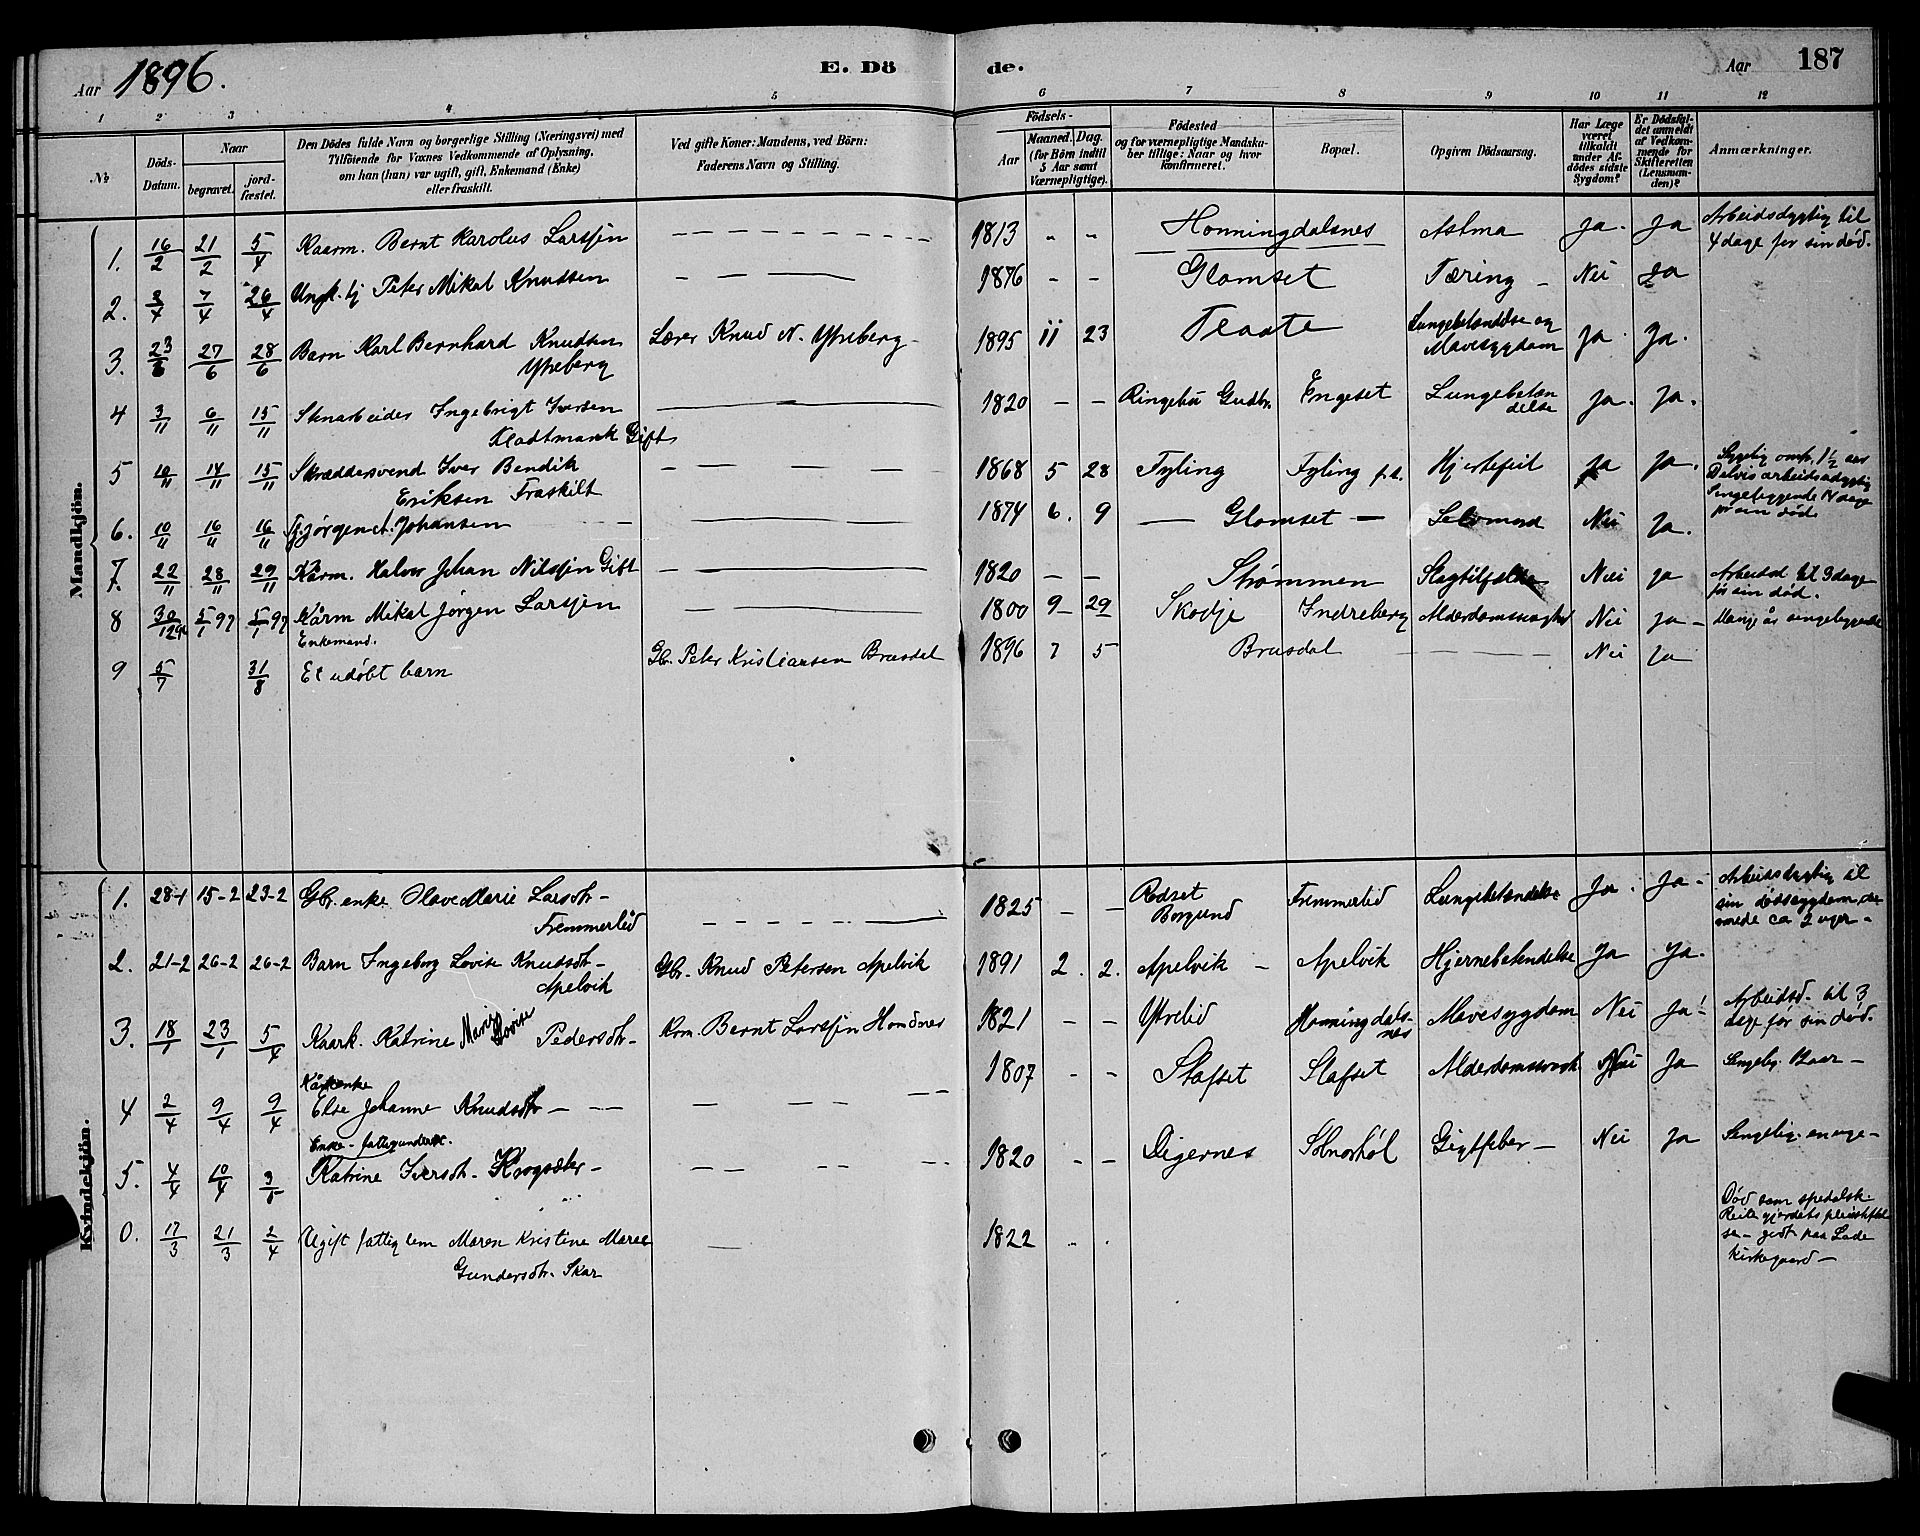 Aar 1896.
E. Dö
de.
Aar
187
1 2 3 4 5 6 7 8 9 10 11 12
№
Döds-Datum.
Naar
begravet.
jord-fæstet.
Den Dödes fulde Navn og borgerlige Stilling (Næringsvei) med
Tilföiende for Voxnes Vedkommende af Oplysning,
om han (hun) var ugift, gift, Enkemand (Enke)
eller fraskilt.
Ved gifte Koner: Mandens, ved Börn:
Faderens Navn og Stilling.
Födsels-
Aar
Maaned. Dag.
(for Börn indtil
5 Aar samt
Værnepligtige).
Födested
og for værnepligtige Mandska-
ber tillige: Naar og hvor
konfirmeret.
Bopæl.
Opgiven Dödsaarsag.
Har Læge
været
tilkaldt
under Af-
dödes sidste
Sygdom?
Er Dödsfal-
det anmeldt
af Vedkom-
mende for
Skifteretten
(Lensman-
den)?
Anmærkninger.
Mandkjön.
1. 16/2 21/2 5/4 Kaarm. Bernt Karolus Larssen 1813 " " Honningdalsnes Astma Ja. Ja Arbeidsdygtig til
4 dage før sin død.
2. 2/4 7/4 26/4 Ungk. Peter Mikal Knudsen 1876 - - Glomset Tæring - Nei Ja
3. 23/6 27/6 28/6 Barn Karl Bernhard Knudsen
Ytreberg Lærer Knud N. Ytreberg 1895 11 23 Tlaate Lungebetændelse og
Mavesygdom Ja. Ja.
4 3/11 6/11 15/11 Stenarbeider Ingebrigt Iversen
Kladtmark Gift 1820 - - Ringebu Gudbr. Engeset Lungebetæn
delse Ja. Ja.
5 10/11 14/11 15/11 Skræddersvend Iver Bendik
Eriksen Fraskilt 1868 5 28 Fyling Fyling Hjertefeil Ja Ja. Sygelig omk. 1½ aar
Delvis arbeidsdygtig
sengeliggende 14 dage
før sin død
6. 10/11 16/11 16/11 Jørgen Johansen 1874 6. 9 - Glomset - Selvmord Nei Ja.
7. 22/11 28/11 29/11 Kårm. Halvor Johan Nilssen Gift 1820 - - Strømmen Slagtilfælde Nei Ja Arbeidsd til 3 dage
før sin død.
8 30/12 5/1 97 5/1 97 Kårm Mikal Jørgen Larssen
Enkemand. 1800 9 29 Skodje Indreberg Alderdomssvaghed Nei Ja - Mange år sengeliggende
9 5/7 31/8 Et udøbt barn Gbr. Peter Kristiansen Brusdal 1896 7 5 Brusdal Nei Ja
Kvindekjön.
1. 28-1 15-2 23-2 Gbr. enke Olave Marie Larsdtr-
Fremmerlid 1825 - - Rødset
Borgund Fremmerlid Lungebetændelse Ja. Ja - Arbeidsdygtig til
sin dødssygdom, der
varede ca 2 uger -
2. 21-2 26-2 26-2 Barn Ingeborg Lovise Knudsdtr-
Apelvik Gbr. Knud Petersen Apelvik 1891 2. 2. Apelvik - Apelvik Hjernebetændelse Ja Ja.
3. 18/1 23/1 5/4 Kaark. Katrine Marie Lovise Pedersdtr- Krm. Bernt Larssen Hondnes 1821 - - Ytrelid Honningdals-
nes Mavesygdom Nei Ja! Arbeidsd. til 3
dage før sin død.
4 2/4 9/4 9/4 Kårenke
Else Johanne Knudsdtr- 1807 - - Stafset Stafset Alderdomssvagh Nei Ja Sengelig. 12 aar -
5. 4/4 10/4 3/5 Enke- fattigunderst.
Katrine Iversdtr. Krogsæter- 1820 - - Digernes Solnørhøl Gigtfeber - Nei Ja Sengelig. en uge -
0. 17/3 21/3 2/4 Ugift fattiglem Maren Kristine Marie
Gundersdtr. Skar 1822 Død som spedalsk.
Reitgjerdets pleiestiftel
se - gidt paa Lade
kirkegaard -